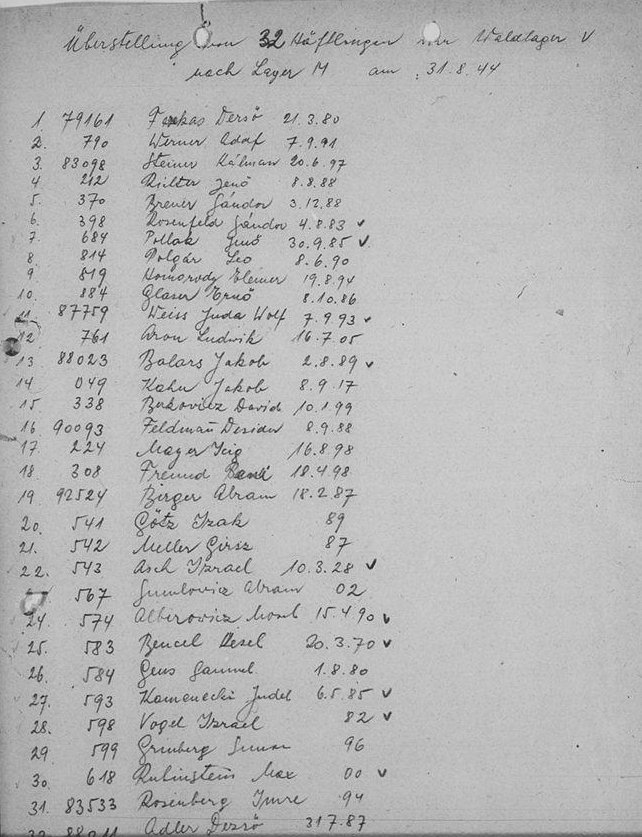 Überstellung von 32 Häftlingen vom Waldlager V
nach Lager M am 31.8.44
1. 79161 Farkas Dersö 21.3.80
2. 790 Werner Adolf 7.9.91
3. 83098 Steiner Kálman 20.6.97
4. 212 Richter Jenö 8.8.88
5. 370 Brener Sándor 3.12.88
6. 398 Rosenfeld Sándor 4.8.83 ✓
7. 684 Pollak Jenö 30.9.85 ✓
8. 814 Polgár Leo 8.6.90
9 819 Homorody Elemer 19.8.94
10. 884 Glaser Ernö 8.10.86
11. 87759 Weiss Juda Wolf 7.9.93 ✓
12 761 Aron Ludwik 16.7.05
13 88023 Balars Jakob 2.8.89 ✓
14 049 Kahn Jakob 8.9.17
15 338 Berkovicz David 10.1.99
16 90093 Feldmañ Desider 8.9.88
17 224 Mayer Icig 16.8.98
18. 308 Freund 18.4.98
19. 92524 Birger Abram 18.2.87
20. 541 Götz Izak 89
21. 542 Meller Girsz 87
22. 543 Asch Izrael 10.3.28 ✓
567 Gumlowicz Abram 02
24. 574 Alberowicz 15.4.90 ✓
25. 583 Bencel Hesel 20.3.70 ✓
26. 584 Gens Samuel 1.8.80
27. 593 Kamenecki Judel 6.5.85 ✓
28. 598 Vogel Izrael 82 ✓
29. 599 Grinberg Simon 96
30. 618 Rubinstein Max 00 ✓
31. 83533 Rosenberg Imre 94
32 88011 Adler Dezsö 31.7.87